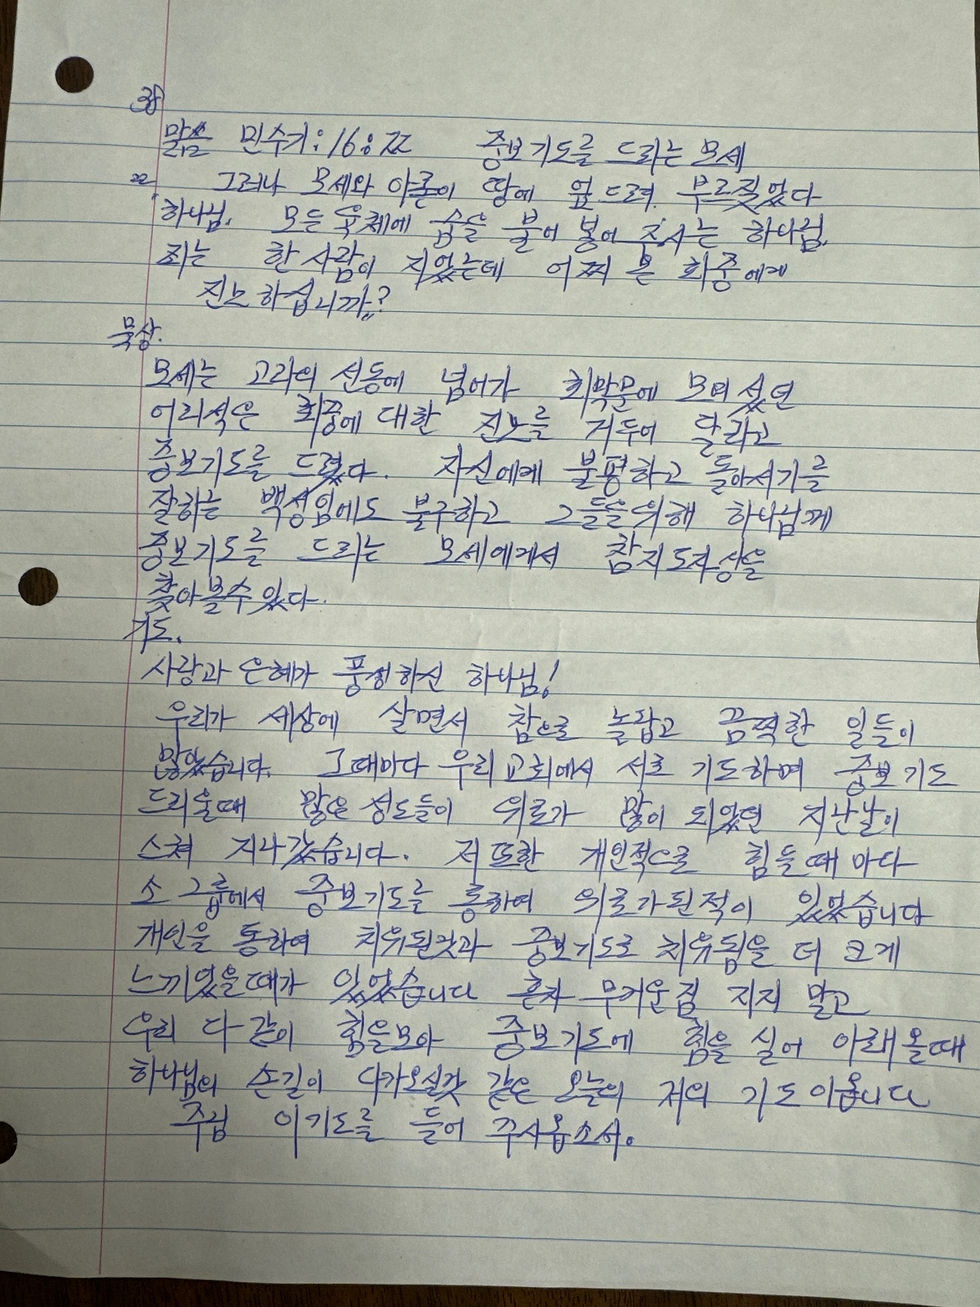 말씀 민수기:16:22 중보기도를 드리는 모세
22 그러나 모세와 아론이 땅에 엎드려 부르짖었다
하나님, 모든 육체에 숨을 불어 넣어 주시는 하나님,
죄는 한 사람이 지었는데 어찌 온 회중에게
진노하십니까?"
묵상.
모세는 고라의 선동에 넘어가 회막문에 모여 섰던
어리석은 회중에 대한 진노를 거두어 달라고
중보기도를 드렸다. 자신에게 불평하고 돌아서기를
잘하는 백성임에도 불구하고 그들을 위해 하나님께
중보기도를 드리는 모세에게서 참지도자상을
찾아 볼수있다.
기도.
사랑과 은혜가 풍성하신 하나님!
우리가 세상에 살면서 참으로 놀랍고 끔찍한 일들이
많았습니다. 그때마다 우리교회에서 서로 기도하며 중보기도
드리울때 많은 성도들이 위로가 많이 되었던 지난날이
스쳐 지나갔습니다. 저 또한 개인적으로 힘들때마다
소그룹에서 중보기도를 통하여 위로가된적이 있었습니다
개인을 통하여 치유된것과 중보기도로 치유됨을 더 크게
느끼었을때가 있었습니다 혼자 무거운짐 지지 말고
우리 다같이 힘을모아 중보기도에 힘을 실어 아뢰올때
하나님의 손길이 다가오실것 같은 오늘의 저의 기도이옵니다
주님 이기도를 들어 주시옵소서.